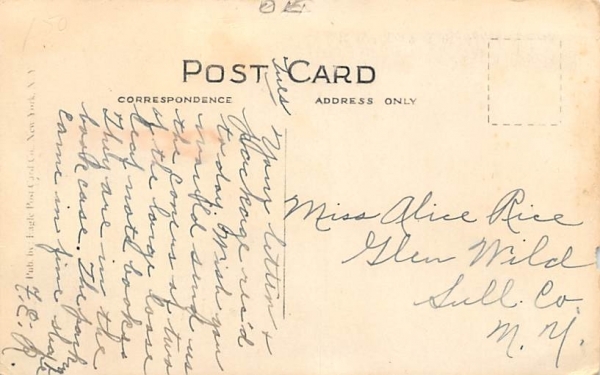 OK
1.50
POST CARD
CORRESPONDENCE
ADDRESS ONLY
Tues
Your letter &
package rec'd
today. Wish you
would send us
the covers of two
of the large loose
leaf note books
They are in the
book case. The pack
came in fine shape
F. E. R.
Miss Alice Rice
Glen Wild
Sull. Co.
N. Y.
Pub. by Eagle Post Card Co. New York, N.Y.